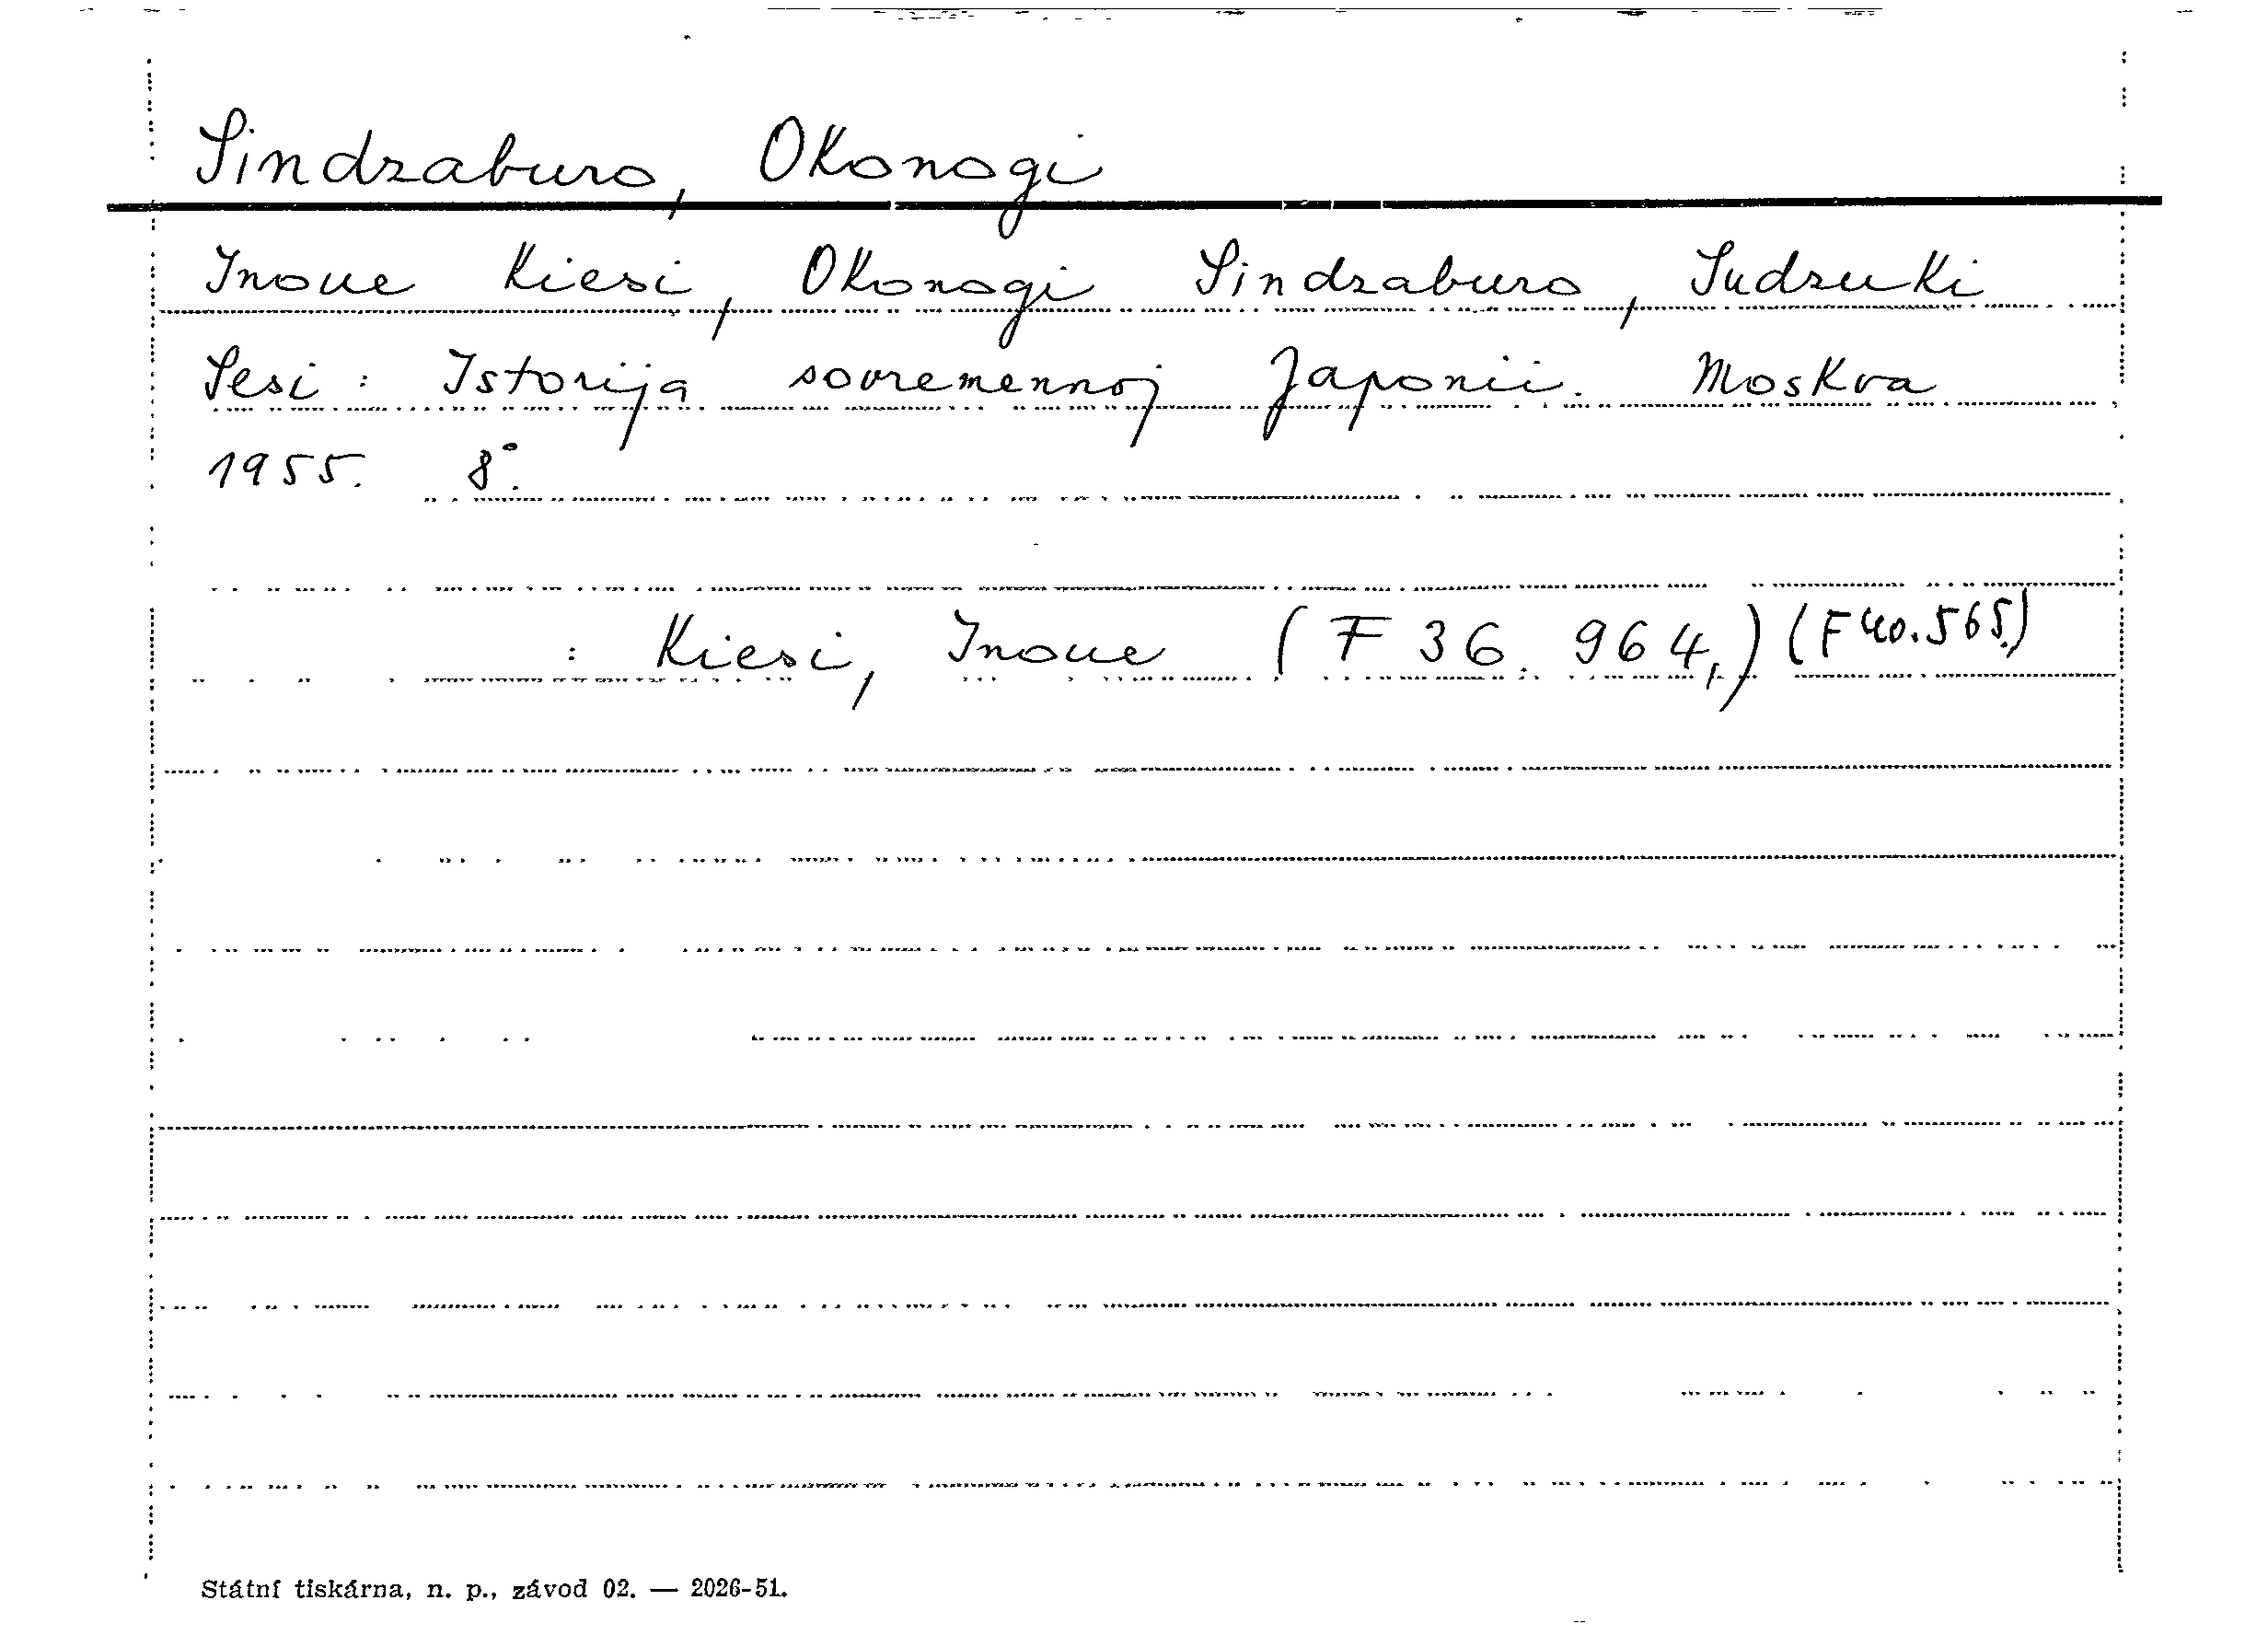 Sindzaburo, Okonogi
Inoue Kiesi, Okonogi Sindzaburo, Sudzuki
Sesi : Istorija sovremennoj Japonii. Moskva
1955. 8°.
: Kiesi, Inoue (F 36. 964,) (F 40.565.)
Státní tiskárna, n. p., závod 02. — 2026-51.